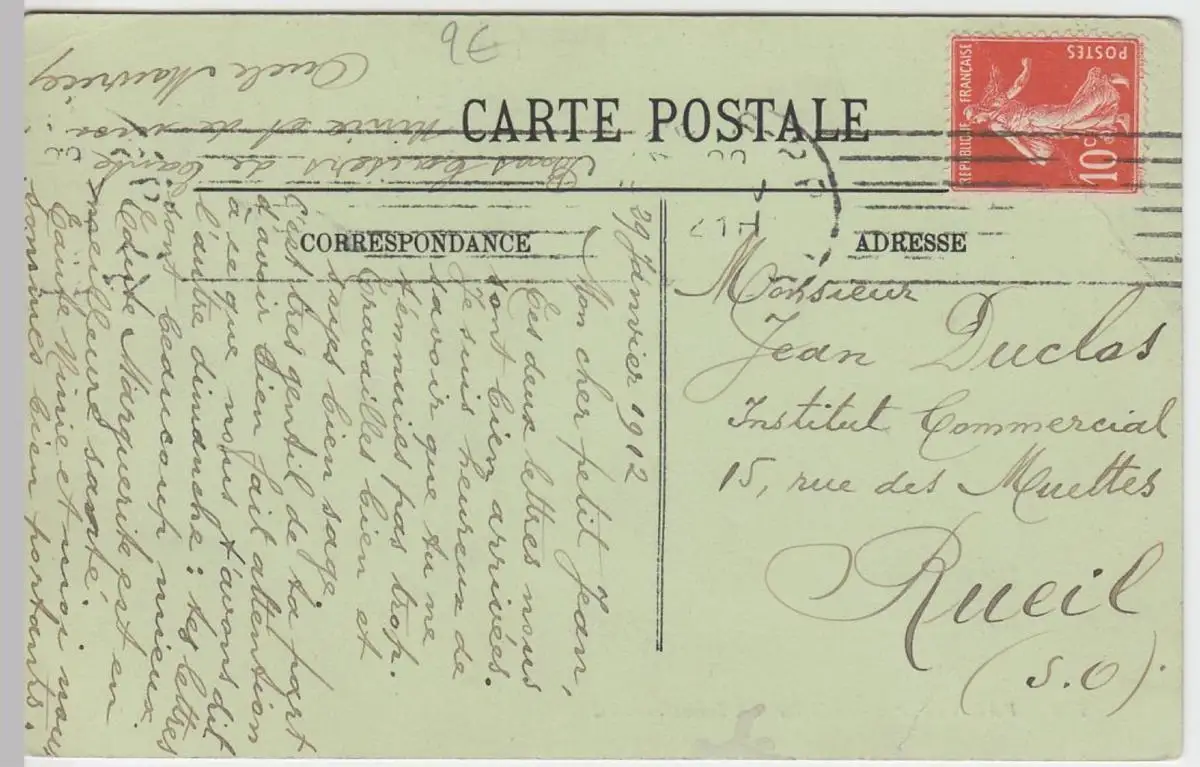 9€
CARTE POSTALE
RÉPUBLIQUE FRANÇAISE
POSTES
10c
21H
CORRESPONDANCE
ADRESSE
Monsieur
Jean Duclos
Institut Commercial
15, rue des Muettes
Rueil
(S.O).
29 Janvier 1912
Mon cher petit Jean,
Les deux lettres nous
sont bien arrivées.
Je suis heureux de
savoir que tu ne
t'ennuies pas trop.
Travailles bien et
sois bien sage.
C'est très gentil de ta part
d'avoir bien fait attention
à ce que nous t'avons dit
l'autre dimanche : tes lettres
sont beaucoup mieux.
Marguerite est en
meilleure santé.
Tante Ninie et moi nous
sommes bien portants.
Bons baisers de tante
Ninie et de moi.
Oncle Maurice